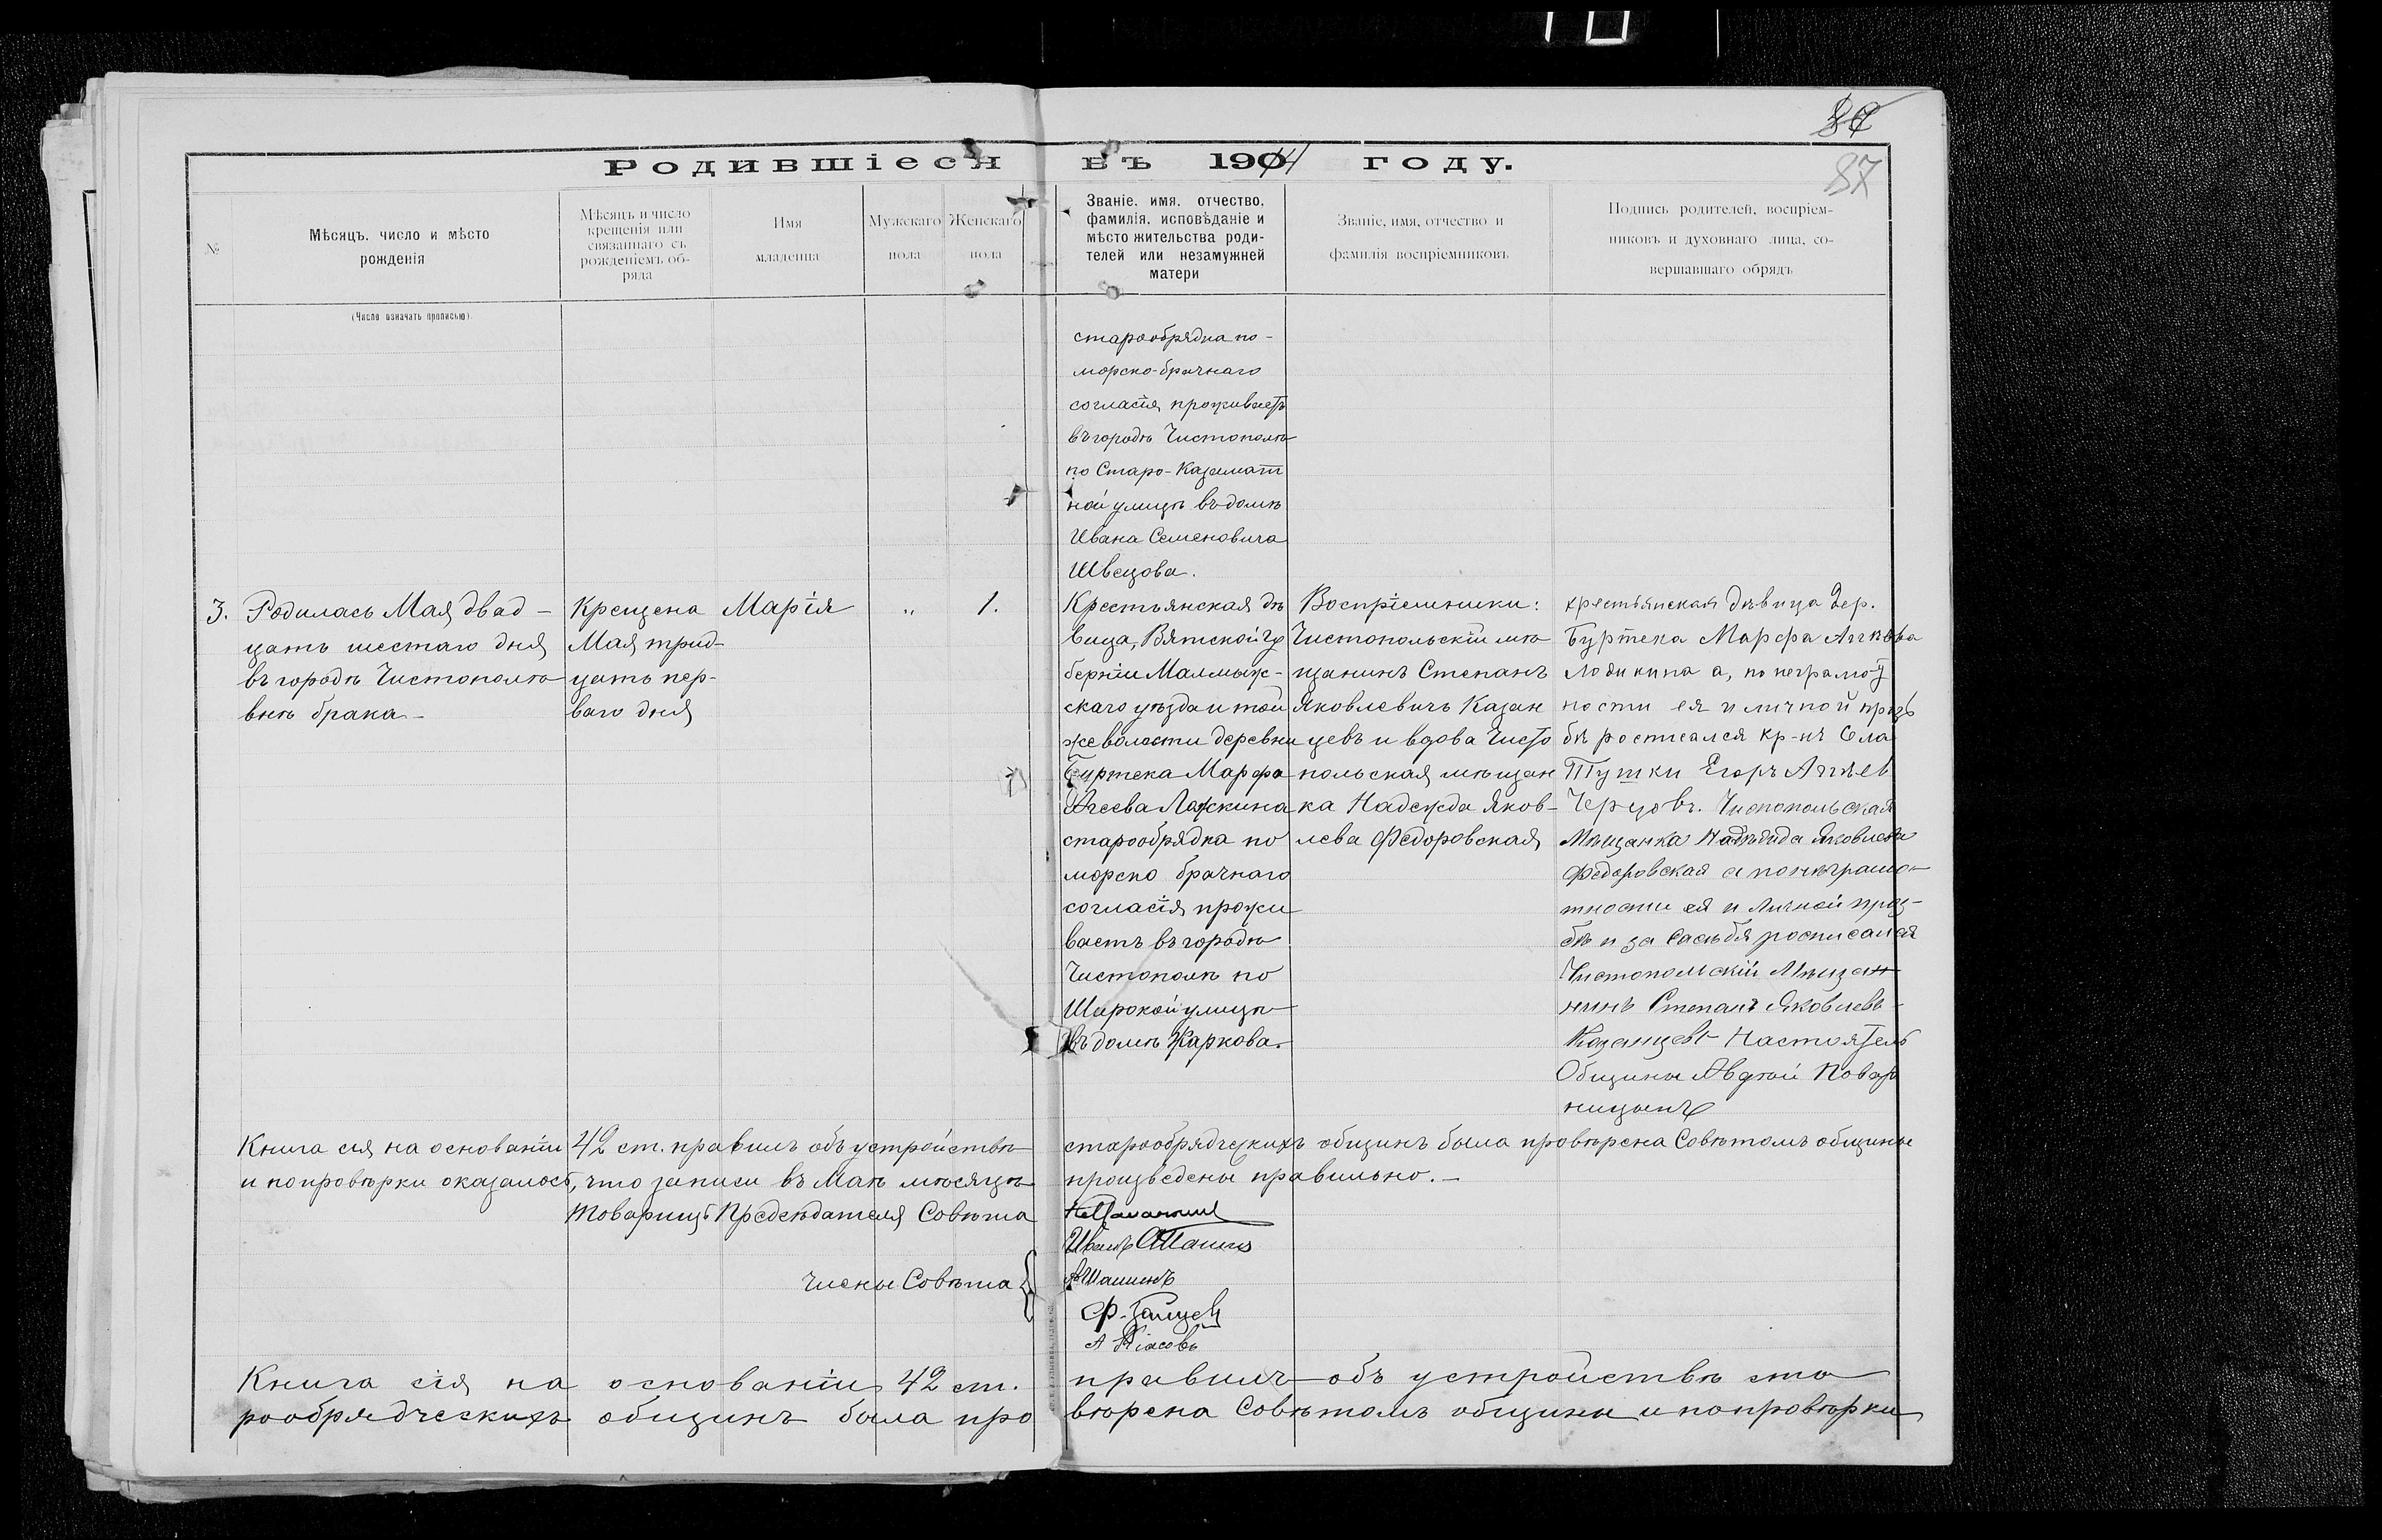 86
87
Родившіеся въ 1914 году.
№
Мѣсяцъ, число и мѣсто
рожденія
Мѣсяцъ и число
крещенія или
связаннаго съ
рожденіемъ об-
ряда
Имя
младенца
Мужскаго
пола
Женскаго
пола
Званіе, имя, отчество,
фамилія, исповѣданіе и
мѣсто жительства роди-
телей или незамужней
матери
Званіе, имя, отчество и
фамилія воспріемниковъ
Подпись родителей, воспріем-
никовъ и духовнаго лица, со-
вершавшаго обрядъ
(Число означать прописью).
старообрядка по-
морско-брачнаго
согласія, проживаетъ
въ городѣ Чистополѣ
по Старо-Казематт
ной улицѣ въ домѣ
Ивана Семеновича
Швецова.
3.
Родилась Мая двад-
цать шестаго дня
въ городѣ Чистополѣ
внѣ брака-
Крещена
Мая трид-
цать пер-
ваго дня
Марія
„
1.
Крестьянская дѣ
вица, Вятской гу
берніи Малмыж-
скаго уѣзда и той
же волости деревни
Буртека Марфа
Агеева Ложкина
старообрядка по
морско брачнаго
согласія, прожи
ваетъ въ городѣ
Чистополѣ по
Широкой улицѣ
въ домѣ Жаркова.
Воспріемники:
Чистопольскій мѣ
щанинъ Степанъ
Яковлевичъ Казан
цевъ и вдова Чисто
польская мѣщан
ка Надежда Яков-
лева Федоровская
крестьянская дѣвица дер.
Буртека Марфа
а, по неграмот
ности ея и личной прозь
бѣ росписался кр-нъ Села
Тушки Егоръ
Черцовъ. Чистопольская
Мѣщанка Яковлева
Федоровская а по неграмо-
тности ея и личной проз-
бѣ и за себя росписался
Чистопольскій Мѣщан
нинъ Степанъ Яковлевъ
Казанцевъ Настоятель
Общины Авдѣй Повар
ницынъ
Книга сія на основаніи 42 ст. правилъ объ устройствѣ старообрядческихъ общинъ была провѣрена Совѣтомъ общины
и по провѣрки оказалось, что записи въ Маѣ мѣсяцѣ произведены правильно.-
Товарищъ Предсѣдателя Совѣта
Иванъ
Члены Совѣта
Шашинъ
Книга сія на основаніи 42 ст. правилъ объ устройствѣ ста
рообрядческихъ общинъ была провѣрена Совѣтомъ общины и по провѣрки